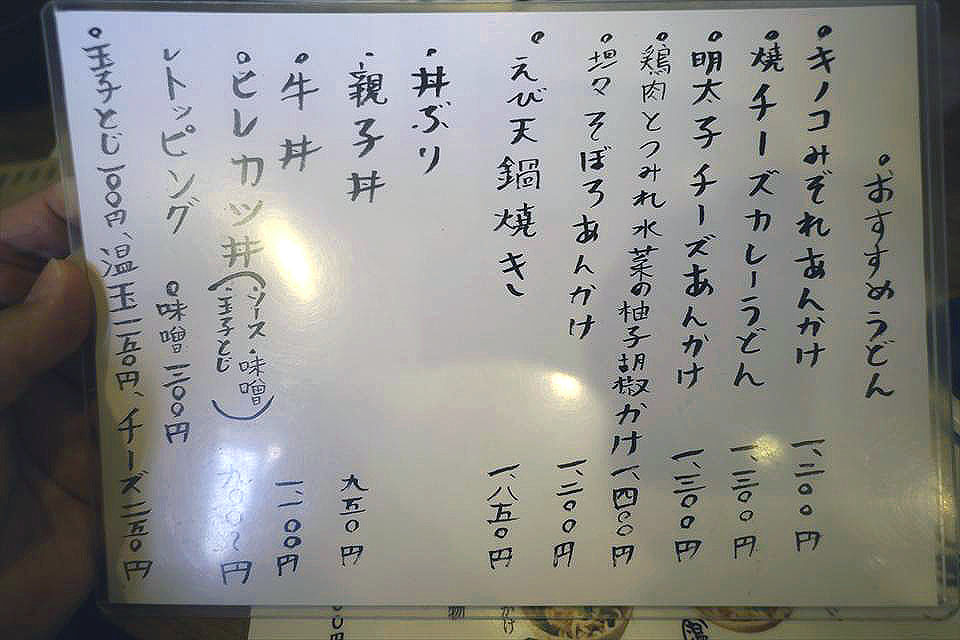 おすすめうどん
キノコみぞれあんかけ 一、二〇〇円
焼チーズカレーうどん 一、三〇〇円
明太子チーズあんかけ 一、三〇〇円
鶏肉とつみれ水菜の柚子胡椒かけ 一、四〇〇円
坦々そぼろあんかけ 一、二〇〇円
えび天鍋焼き 一、八五〇円
丼ぶり
親子丼 九五〇円
牛丼 一、一〇〇円
ヒレカツ丼(・ソース・味噌・玉子とじ) 九〇〇〜円
トッピング 味噌 二〇〇円
玉子とじ一〇〇円、温玉一五〇円、チーズ二五〇円
かけ
物